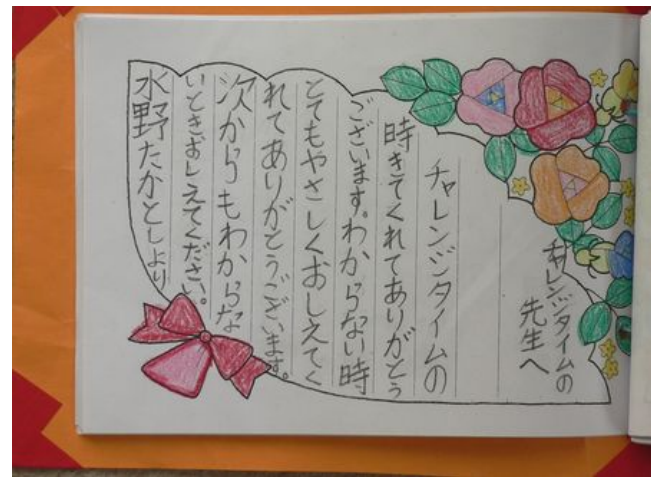 チャレンジタイムの
先生へ
チャレンジタイムの
時きてくれてありがとう
ございます。わからない時
とてもやさしくおしえてく
れてありがとうございます。
次からもわからな
いときおしえてください。
水野たかとしより